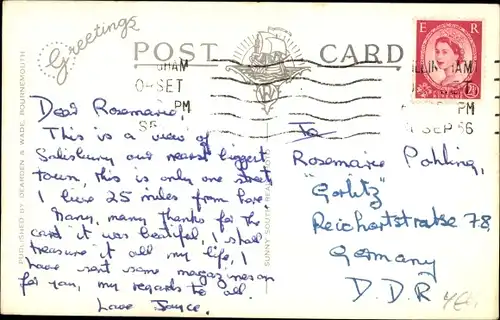 Greetings
POST CARD
E R
GHAM
ILLINGHAM
SET
PM
PM
SEP 56
PUBLISHED BY DEARDEN & WADE, BOURNEMOUTH
SUNNY SOUTH
Dear Rosemarie
This is a view of
Salisbury our nearest biggest
town, this is only one street
I live 25 miles from here
Many, many thanks for the
card it was beatiful, I shall
treasure it all my life, I
have sent some magazines on
for you, my regards to all.
Love Joyce.
To
Rosemarie Pohling,
"Gorlitz"
Reichertstratse 78,
Germany
D.D.R